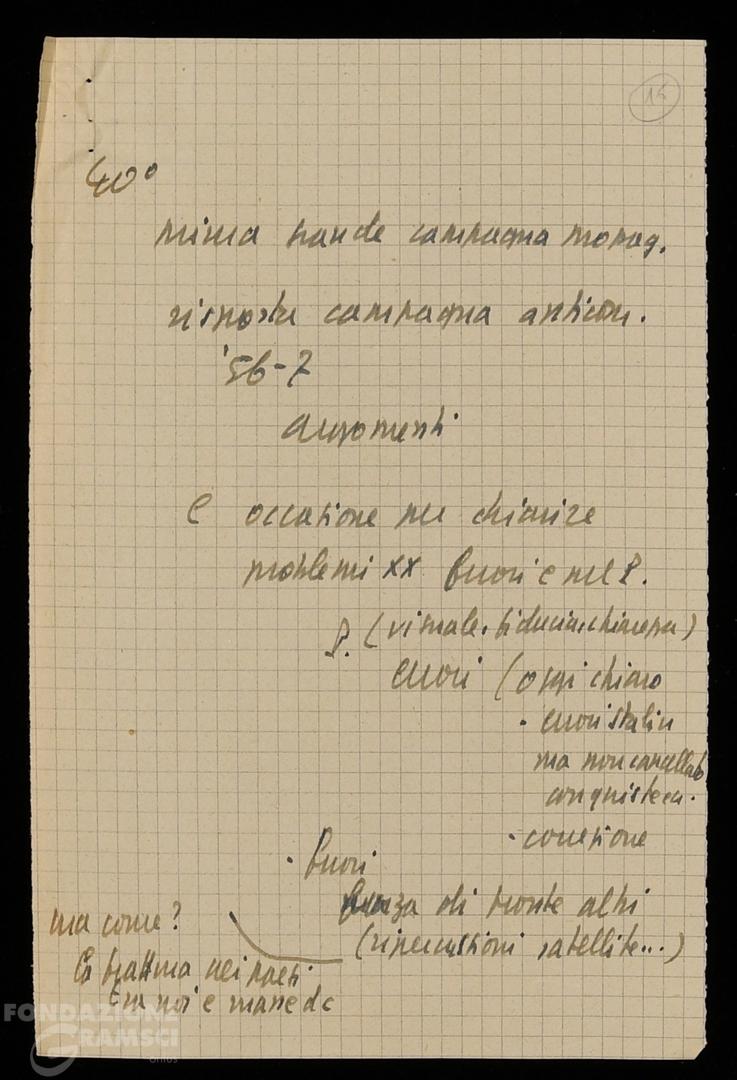 15
40°
prima grande campagna propag.
risposta campagna anticom.
'56-7
argomenti
e occasione per chiarire
problemi XX fuori e nel P.
P. ( fiducia, chiarezza)
errori (oggi chiaro
. errori Stalin
ma non cancellato
conquiste
. correzione
. fuori
forza di fronte altri
(ripercussioni satellite...)
ma come?
nei paesi
tra noi e masse dc
FONDAZIONE
GRAMSCI
onlus